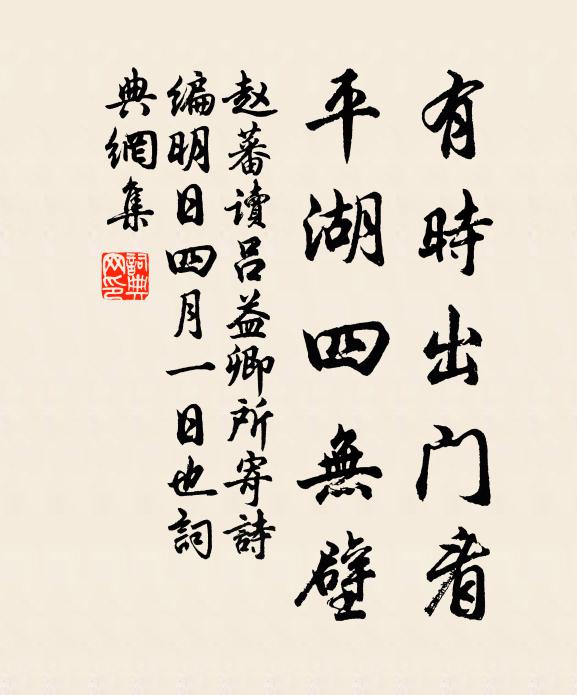 有時出门看
平湖四無壁
赵蕃讀吕益卿所寄詩
编明日四月一日也詞
典網集
詞典网印